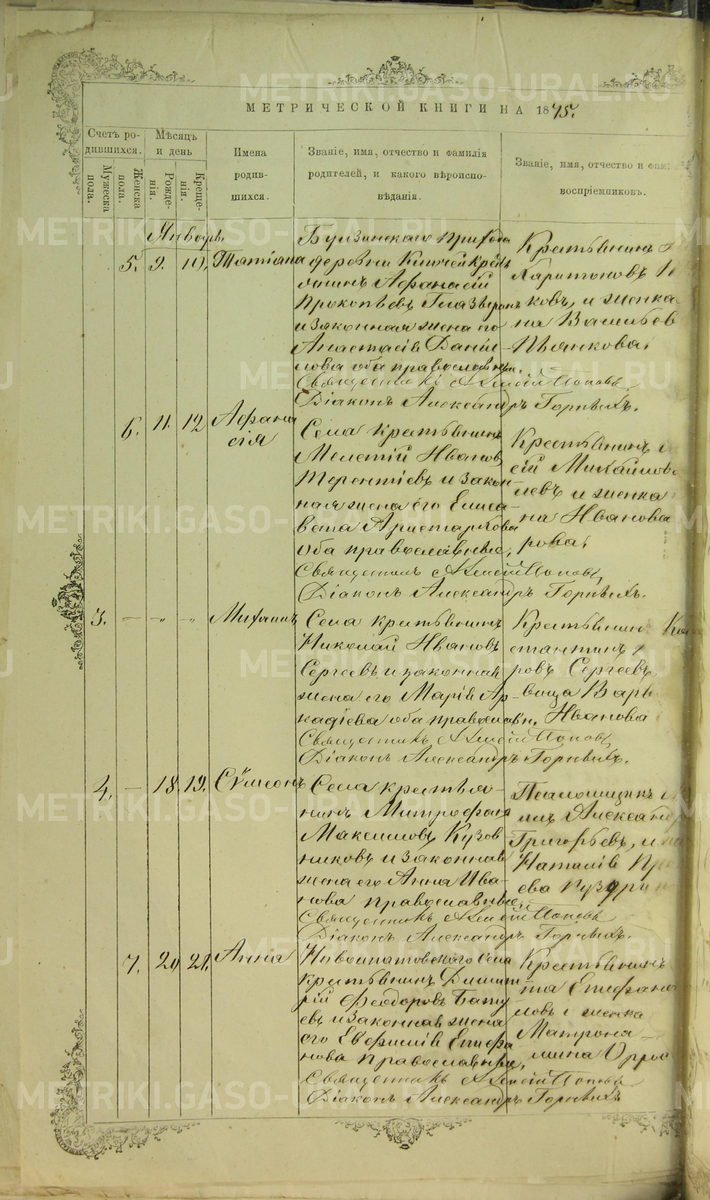 МЕТРИЧЕСКОЙ КНИГИ НА 1875.
Счетъ ро-
дившихся.
Мужеска
пола.
Женска
пола.
Мѣсяцъ
и день
Рожде-
нія.
Креще-
нія.
Имена
родив-
шихся.
Званіе, имя, отчество и фамилія
родителей, и какого вѣроиспо-
вѣданія.
Званіе, имя, отчество и фам
воспріемниковъ.
Январь
5. 9. 10. Татіана
Бугзинскаго прихода
деревни Ключей кресть
янинъ Афанасій
Прокопьевъ
и законная жена
Анастасія Даніи-
лова оба православн.
Священникъ Алексій Поповъ
Діаконъ Александръ Горныхъ.
Крестьянинъ
Харитоновъ
ковъ, и женка
на Васильев
Пьянкова.
6. 11. 12 Афана
сія
Села крестьянинъ
Мелетій Ивановъ
Терентіевъ и закон
ная жена его Елиса-
вета Аристархова
оба православные,
Священникъ Алексій Поповъ
Діаконъ Александръ Горныхъ.
Крестьянинъ
сій Михайлов
левъ и женка
на Иванова
рова.
3. — „ „ Михаилъ
Села крестьянинъ
Николай Ивановъ
Сергеевъ и законная
жена его Марія Ар-
кадіева оба православн.
Священникъ Алексій Поповъ
Діаконъ Александръ Горныхъ.
Крестьянин Кон
стантинъ
ровъ Сергеевъ
вица Варв
Иванова
4. — 18. 19. Сѵмеонъ
Села крестья-
нинъ Митрофанъ
Максимовъ Кузов
никовъ и законная
жена его Анна Ива
нова православные,
Священникъ Алексій Поповъ
Діаконъ Александръ Горныхъ.
Псаломщикъ
Александр
Григорьевъ, и
Наталія
ева
7. 20 21. Анна
Новоипатовскаго села
крестьянинъ Димит
рій Феодоровъ Бату
евъ и законная жена
его Евфимія Епифа
нова православные,
Священникъ Алексій Поповъ
Діаконъ Александръ Горныхъ
Крестьянинъ
та Епифана
ловъ и женка
Матрона
мина
METRIKI.GASO-URAL.RU